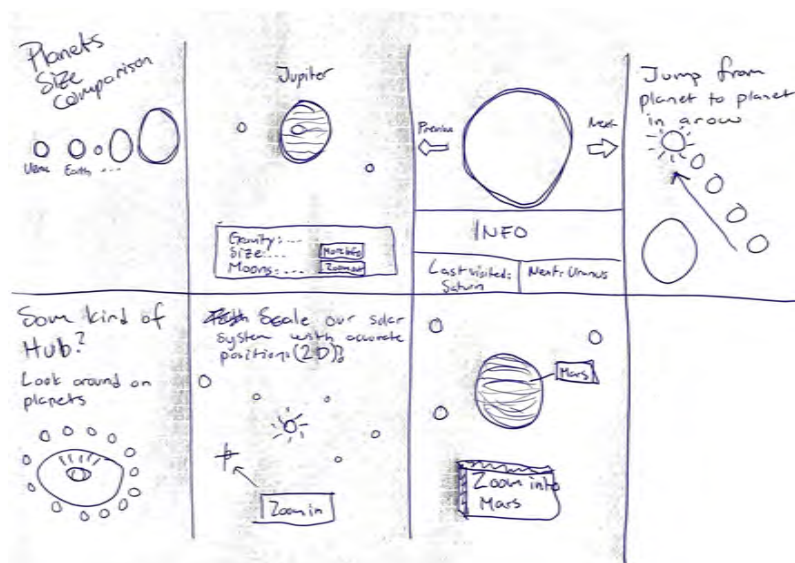 Planets
Size
Comparison
Venus
Earth
...
Jupiter
Gravity: ...
Size: ...
Moons: ...
More Info
Zoom out
Previous
Next
INFO
Last visited:
Saturn
Next: Uranus
Jump from
planet to planet
in arow
Som kind of
Hub?
Look around on
planets
Scale our solar
system with accurate
positions (2D)?
Zoom in
Mars
Zoom into
Mars